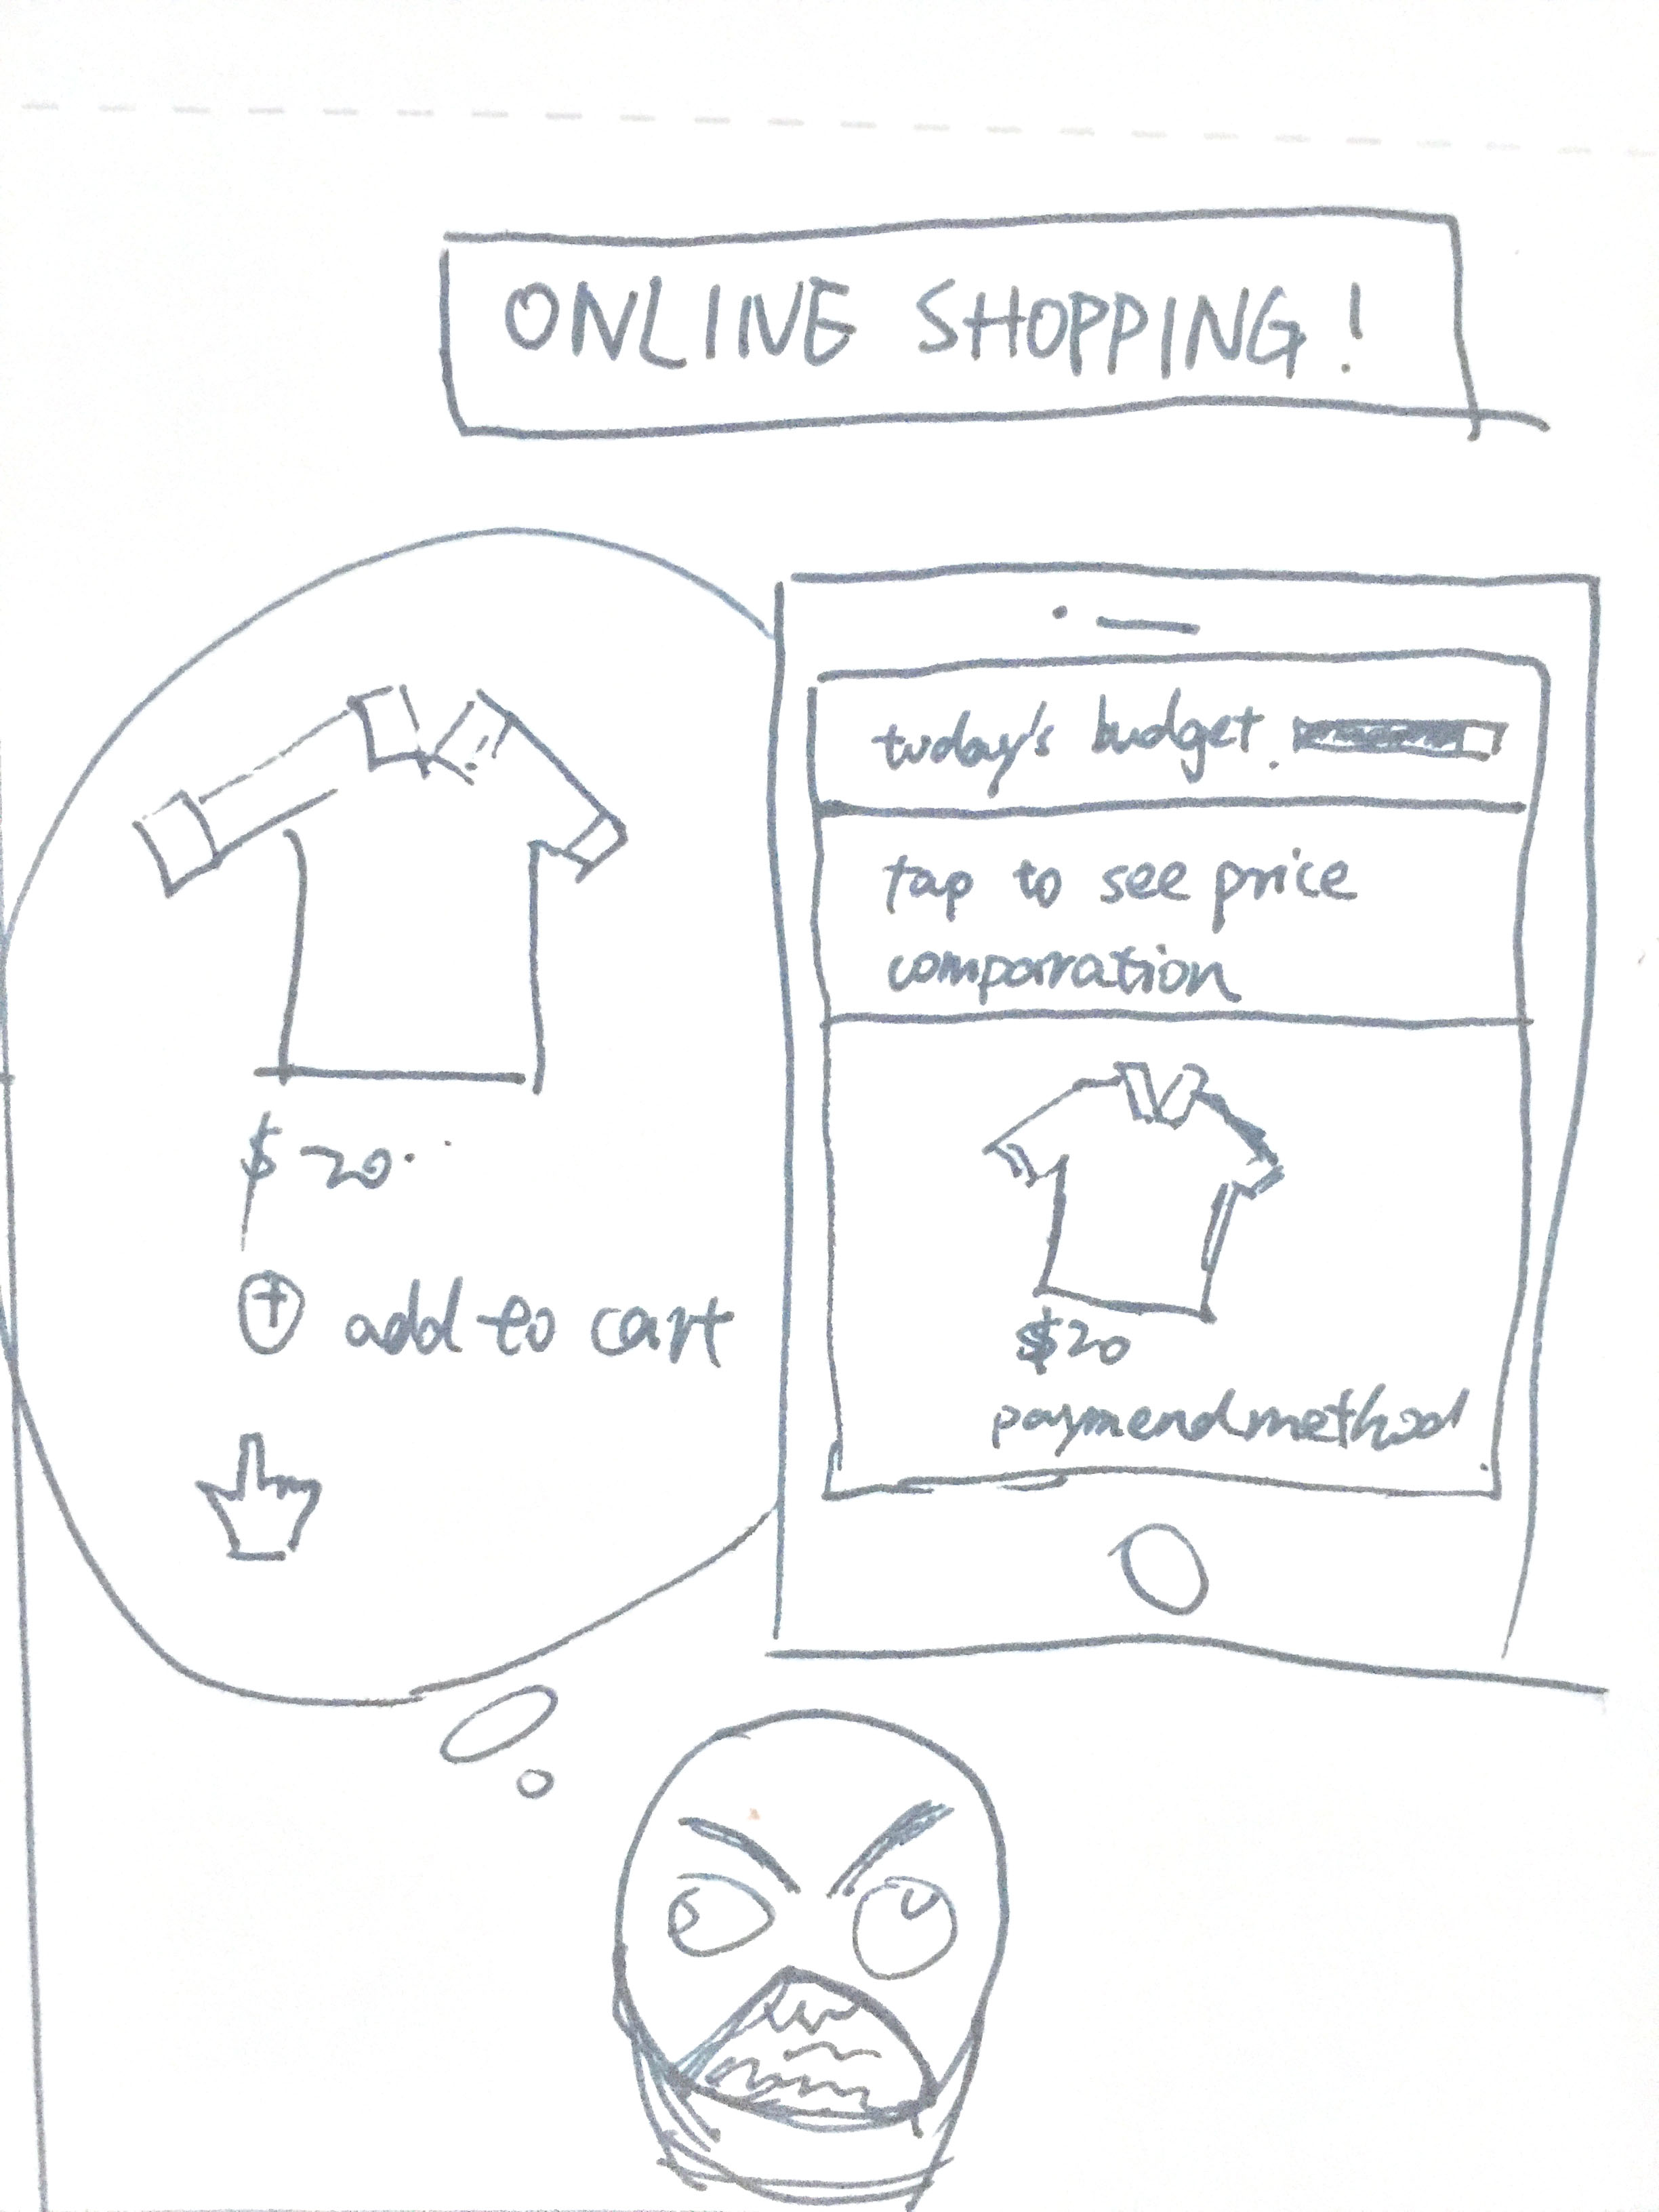 ONLINE SHOPPING!
$20
add to cart
today's budget.
tap to see price
comparration
$20
paymend method